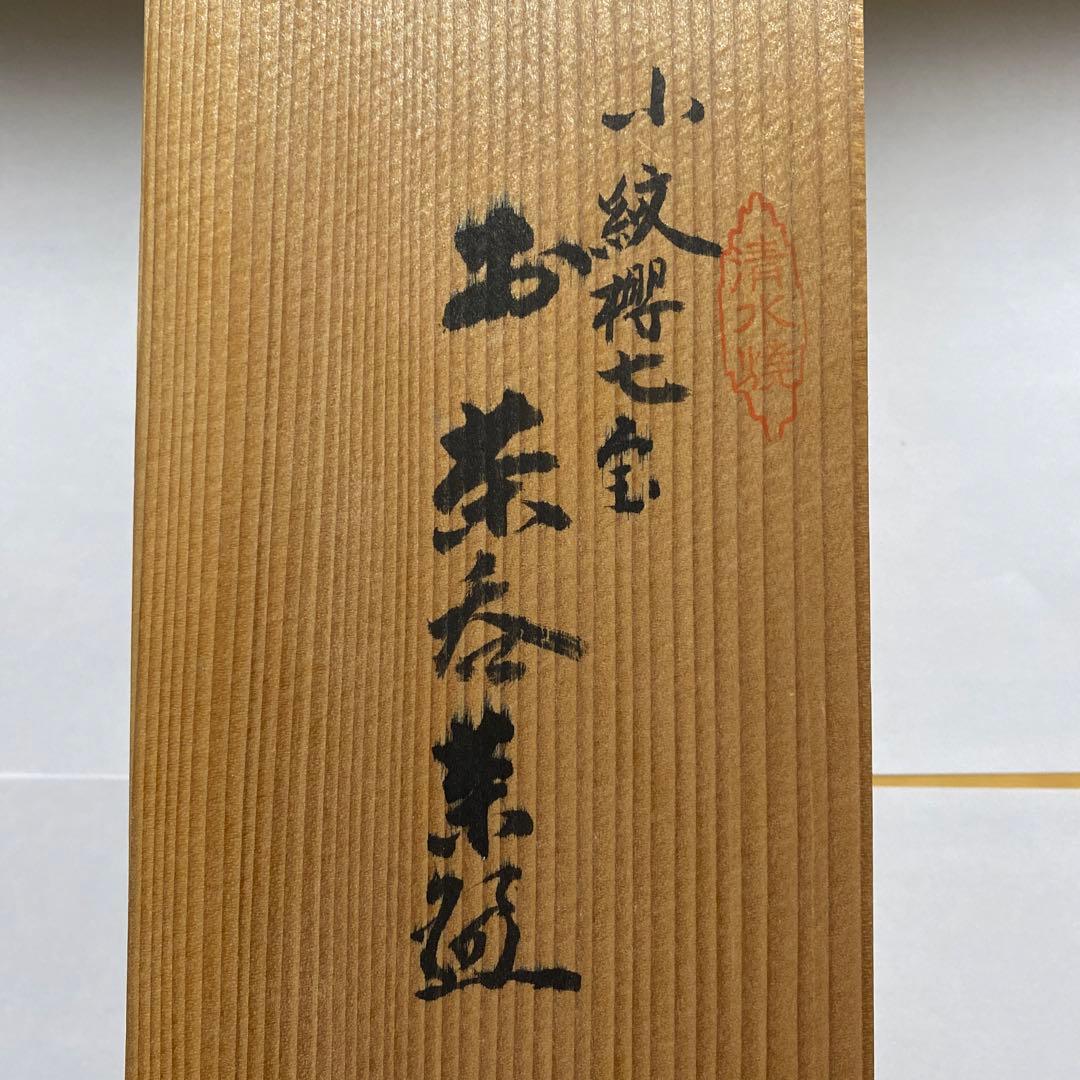 清水焼
小紋櫻七宝
お茶呑茶碗